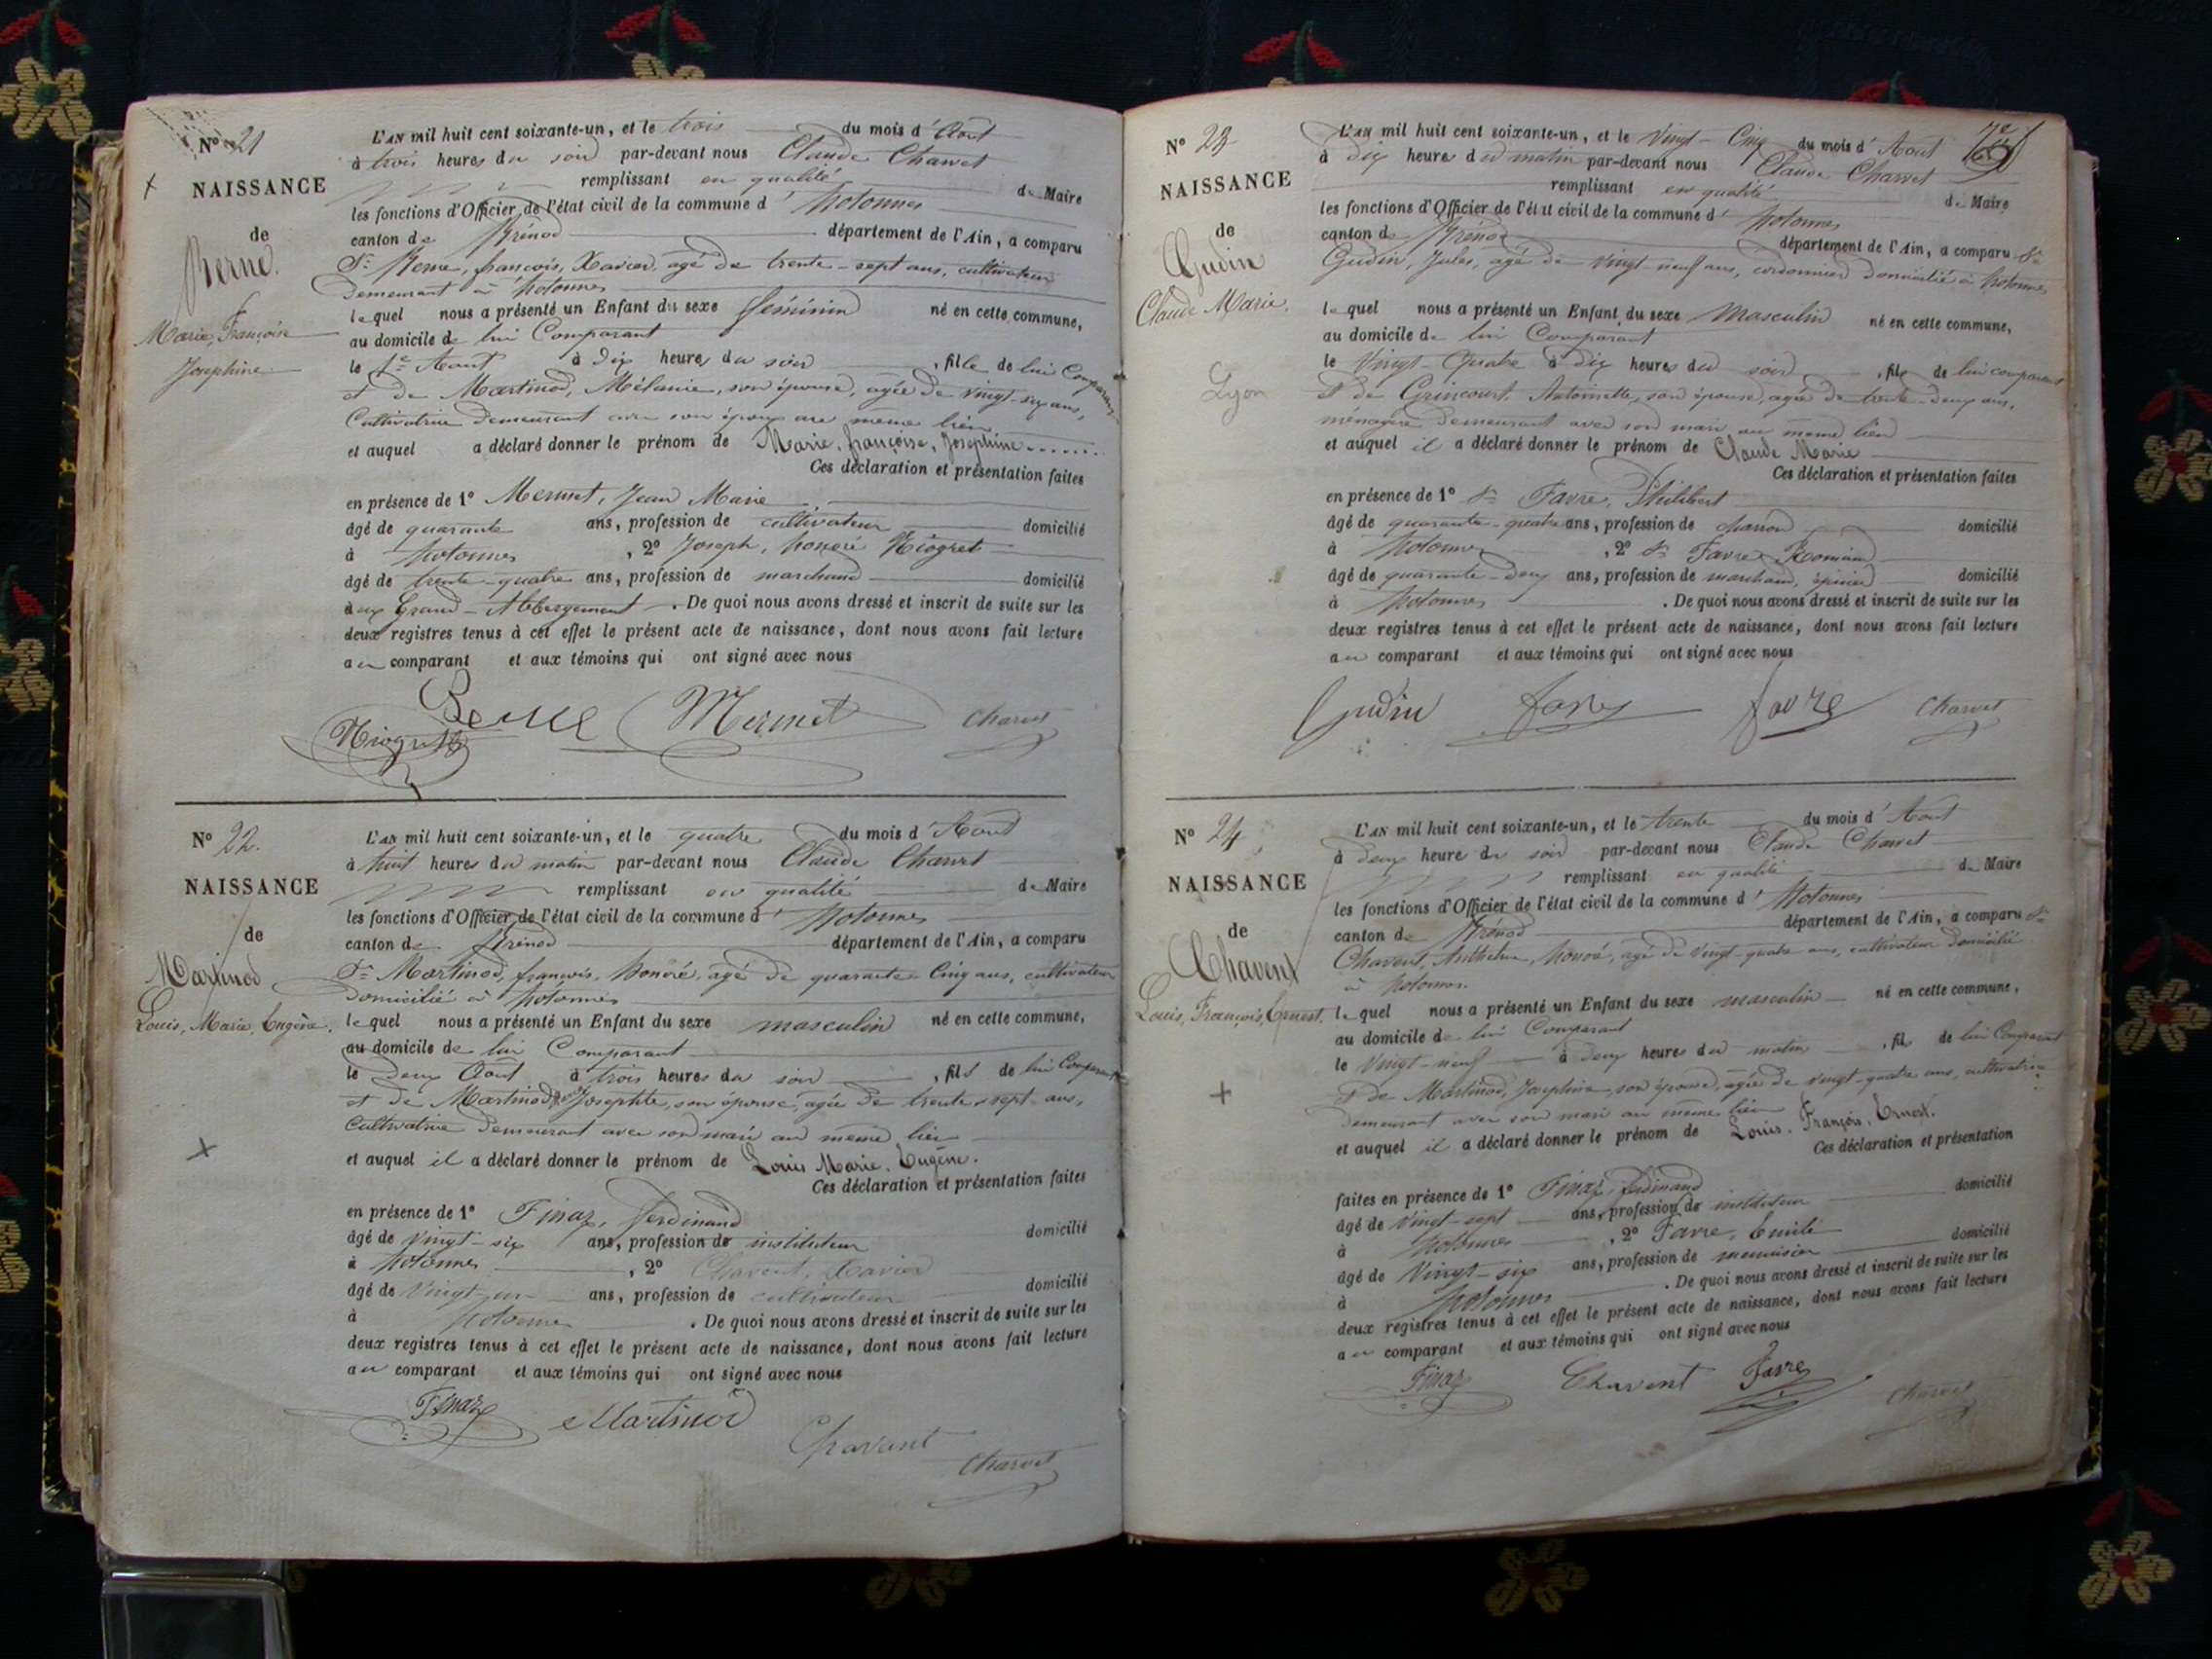 N° 21
NAISSANCE
de
Berne
Marie, Françoise
Josephine
L'AN mil huit cent soixante-un, et le trois du mois d'Aout
à trois heures du soir par-devant nous Claude Charvet
remplissant en qualité de Maire
les fonctions d'Officier de l'état civil de la commune d'hotonnes
canton de Brénod département de l'Ain, a comparu
Sr Berne, françois, Xavier, agé de trente-sept ans, cultivateur
demeurant à hotonnes
lequel nous a présenté un Enfant du sexe féminin né en cette commune,
au domicile de lui Comparant
le 1er Aout à dix heures du soir, fille de lui Comparant
et de Martinod, Mélanie, son épouse, agée de vingt-six ans,
Cultivatrice demeurant avec son époux au même lieu
et auquel a déclaré donner le prénom de Marie, françoise, Josephine
Ces déclaration et présentation faites
en présence de 1° Mermet, Jean Marie
âgé de quarante ans, profession de cultivateur domicilié
à hotonnes, 2° Joseph, honoré Niogret
âgé de trente-quatre ans, profession de marchand domicilié
aux Grand-Abbergement. De quoi nous avons dressé et inscrit de suite sur les
deux registres tenus à cet effet le présent acte de naissance, dont nous avons fait lecture
au comparant et aux témoins qui ont signé avec nous
Berne Mermet Charvet
Niogret
N° 22.
NAISSANCE
de
Martinod
Louis, Marie, Eugène.
L'AN mil huit cent soixante-un, et le quatre du mois d'Aout
à huit heures du matin par-devant nous Claude Charvet
remplissant en qualité de Maire
les fonctions d'Officier de l'état civil de la commune d'hotonnes
canton de Brénod département de l'Ain, a comparu
Sr Martinod, françois, honoré, agé de quarante Cinq ans, cultivateur
domicilié à hotonnes
lequel nous a présenté un Enfant du sexe masculin né en cette commune,
au domicile de lui Comparant
le deux Aout à trois heures du soir, fils de lui Comparant
et de Martinod, Josephte, son épouse, agée de trente sept ans,
Cultivatrice demeurant avec son mari au même lieu
et auquel il a déclaré donner le prénom de Louis Marie, Eugène.
Ces déclaration et présentation faites
en présence de 1° Finaz, Ferdinand
âgé de vingt-six ans, profession de instituteur domicilié
à hotonnes, 2° Chavent, Xavier
âgé de vingt-un ans, profession de cultivateur domicilié
à hotonnes. De quoi nous avons dressé et inscrit de suite sur les
deux registres tenus à cet effet le présent acte de naissance, dont nous avons fait lecture
au comparant et aux témoins qui ont signé avec nous
Finaz Martinod
Chavent Charvet
N° 23
NAISSANCE
de
Gudin
Claude Marie.
Lyon
L'AN mil huit cent soixante-un, et le Vingt-Cinq du mois d'Aout
à dix heures du matin par-devant nous Claude Charvet
remplissant en qualité de Maire
les fonctions d'Officier de l'état civil de la commune d'hotonnes
canton de Brénod département de l'Ain, a comparu Sr
Gudin, Jules, agé de vingt-neuf ans, cordonnier domicilié à hotonnes
lequel nous a présenté un Enfant du sexe Masculin né en cette commune,
au domicile de lui Comparant
le Vingt-Quatre à dix heures du soir, fils de lui comparant
et de Grincourt, Antoinette, son épouse, agée de trente-deux ans,
ménagère demeurant avec son mari au même lieu
et auquel il a déclaré donner le prénom de Claude Marie
Ces déclaration et présentation faites
en présence de 1° Sr Favre, Philibert
âgé de quarante-quatre ans, profession de charron domicilié
à hotonnes, 2° Sr Favre, Romain
âgé de quarante-deux ans, profession de marchand, épicier domicilié
à hotonnes. De quoi nous avons dressé et inscrit de suite sur les
deux registres tenus à cet effet le présent acte de naissance, dont nous avons fait lecture
au comparant et aux témoins qui ont signé avec nous
Gudin favre favre Charvet
N° 24
NAISSANCE
de
Chavent
Louis, François, Ernest.
L'AN mil huit cent soixante-un, et le trente du mois d'Aout
à deux heure du soir par-devant nous Claude Charvet
remplissant en qualité de Maire
les fonctions d'Officier de l'état civil de la commune d'hotonnes
canton de Brénod département de l'Ain, a comparu Sr
Chavent, Anthelme, honoré, agé de vingt-quatre ans, cultivateur domicilié
à hotonnes.
lequel nous a présenté un Enfant du sexe masculin né en cette commune,
au domicile de lui Comparant
le vingt-neuf à deux heures du matin, fils de lui Comparant
et de Martinod, Josephine, son épouse, agée de vingt-quatre ans, cultivatrice
demeurant avec son mari au même lieu
et auquel il a déclaré donner le prénom de Louis, François, Ernest.
Ces déclaration et présentation
faites en présence de 1° Finaz, ferdinand
âgé de vingt-sept ans, profession de instituteur domicilié
à hotonnes, 2° Favre, Emile
âgé de Vingt-six ans, profession de menuisier domicilié
à hotonnes. De quoi nous avons dressé et inscrit de suite sur les
deux registres tenus à cet effet le présent acte de naissance, dont nous avons fait lecture
au comparant et aux témoins qui ont signé avec nous
Finaz Chavent Favre Charvet